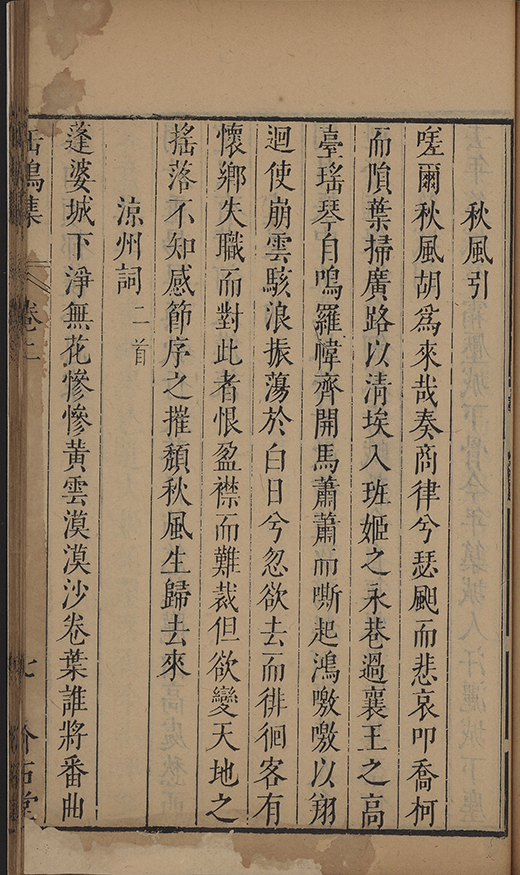 秋風引
嗟爾秋風胡爲來哉奏商律兮瑟颸而悲哀叩喬柯
而隕葉掃廣路以清埃入班姬之永巷過襄王之高
臺瑤琴自鳴羅幃齊開馬蕭蕭而嘶起鴻嗷嗷以翔
迴使崩雲駭浪振蕩於白日兮忽欲去而徘徊客有
懷鄉失職而對此者恨盈襟而難裁但欲變天地之
搖落不知感節序之摧頹秋風生歸去來
涼州詞二首
蓬婆城下淨無花慘慘黃雲漠漠沙卷葉誰將番曲
鳴集 卷二 七